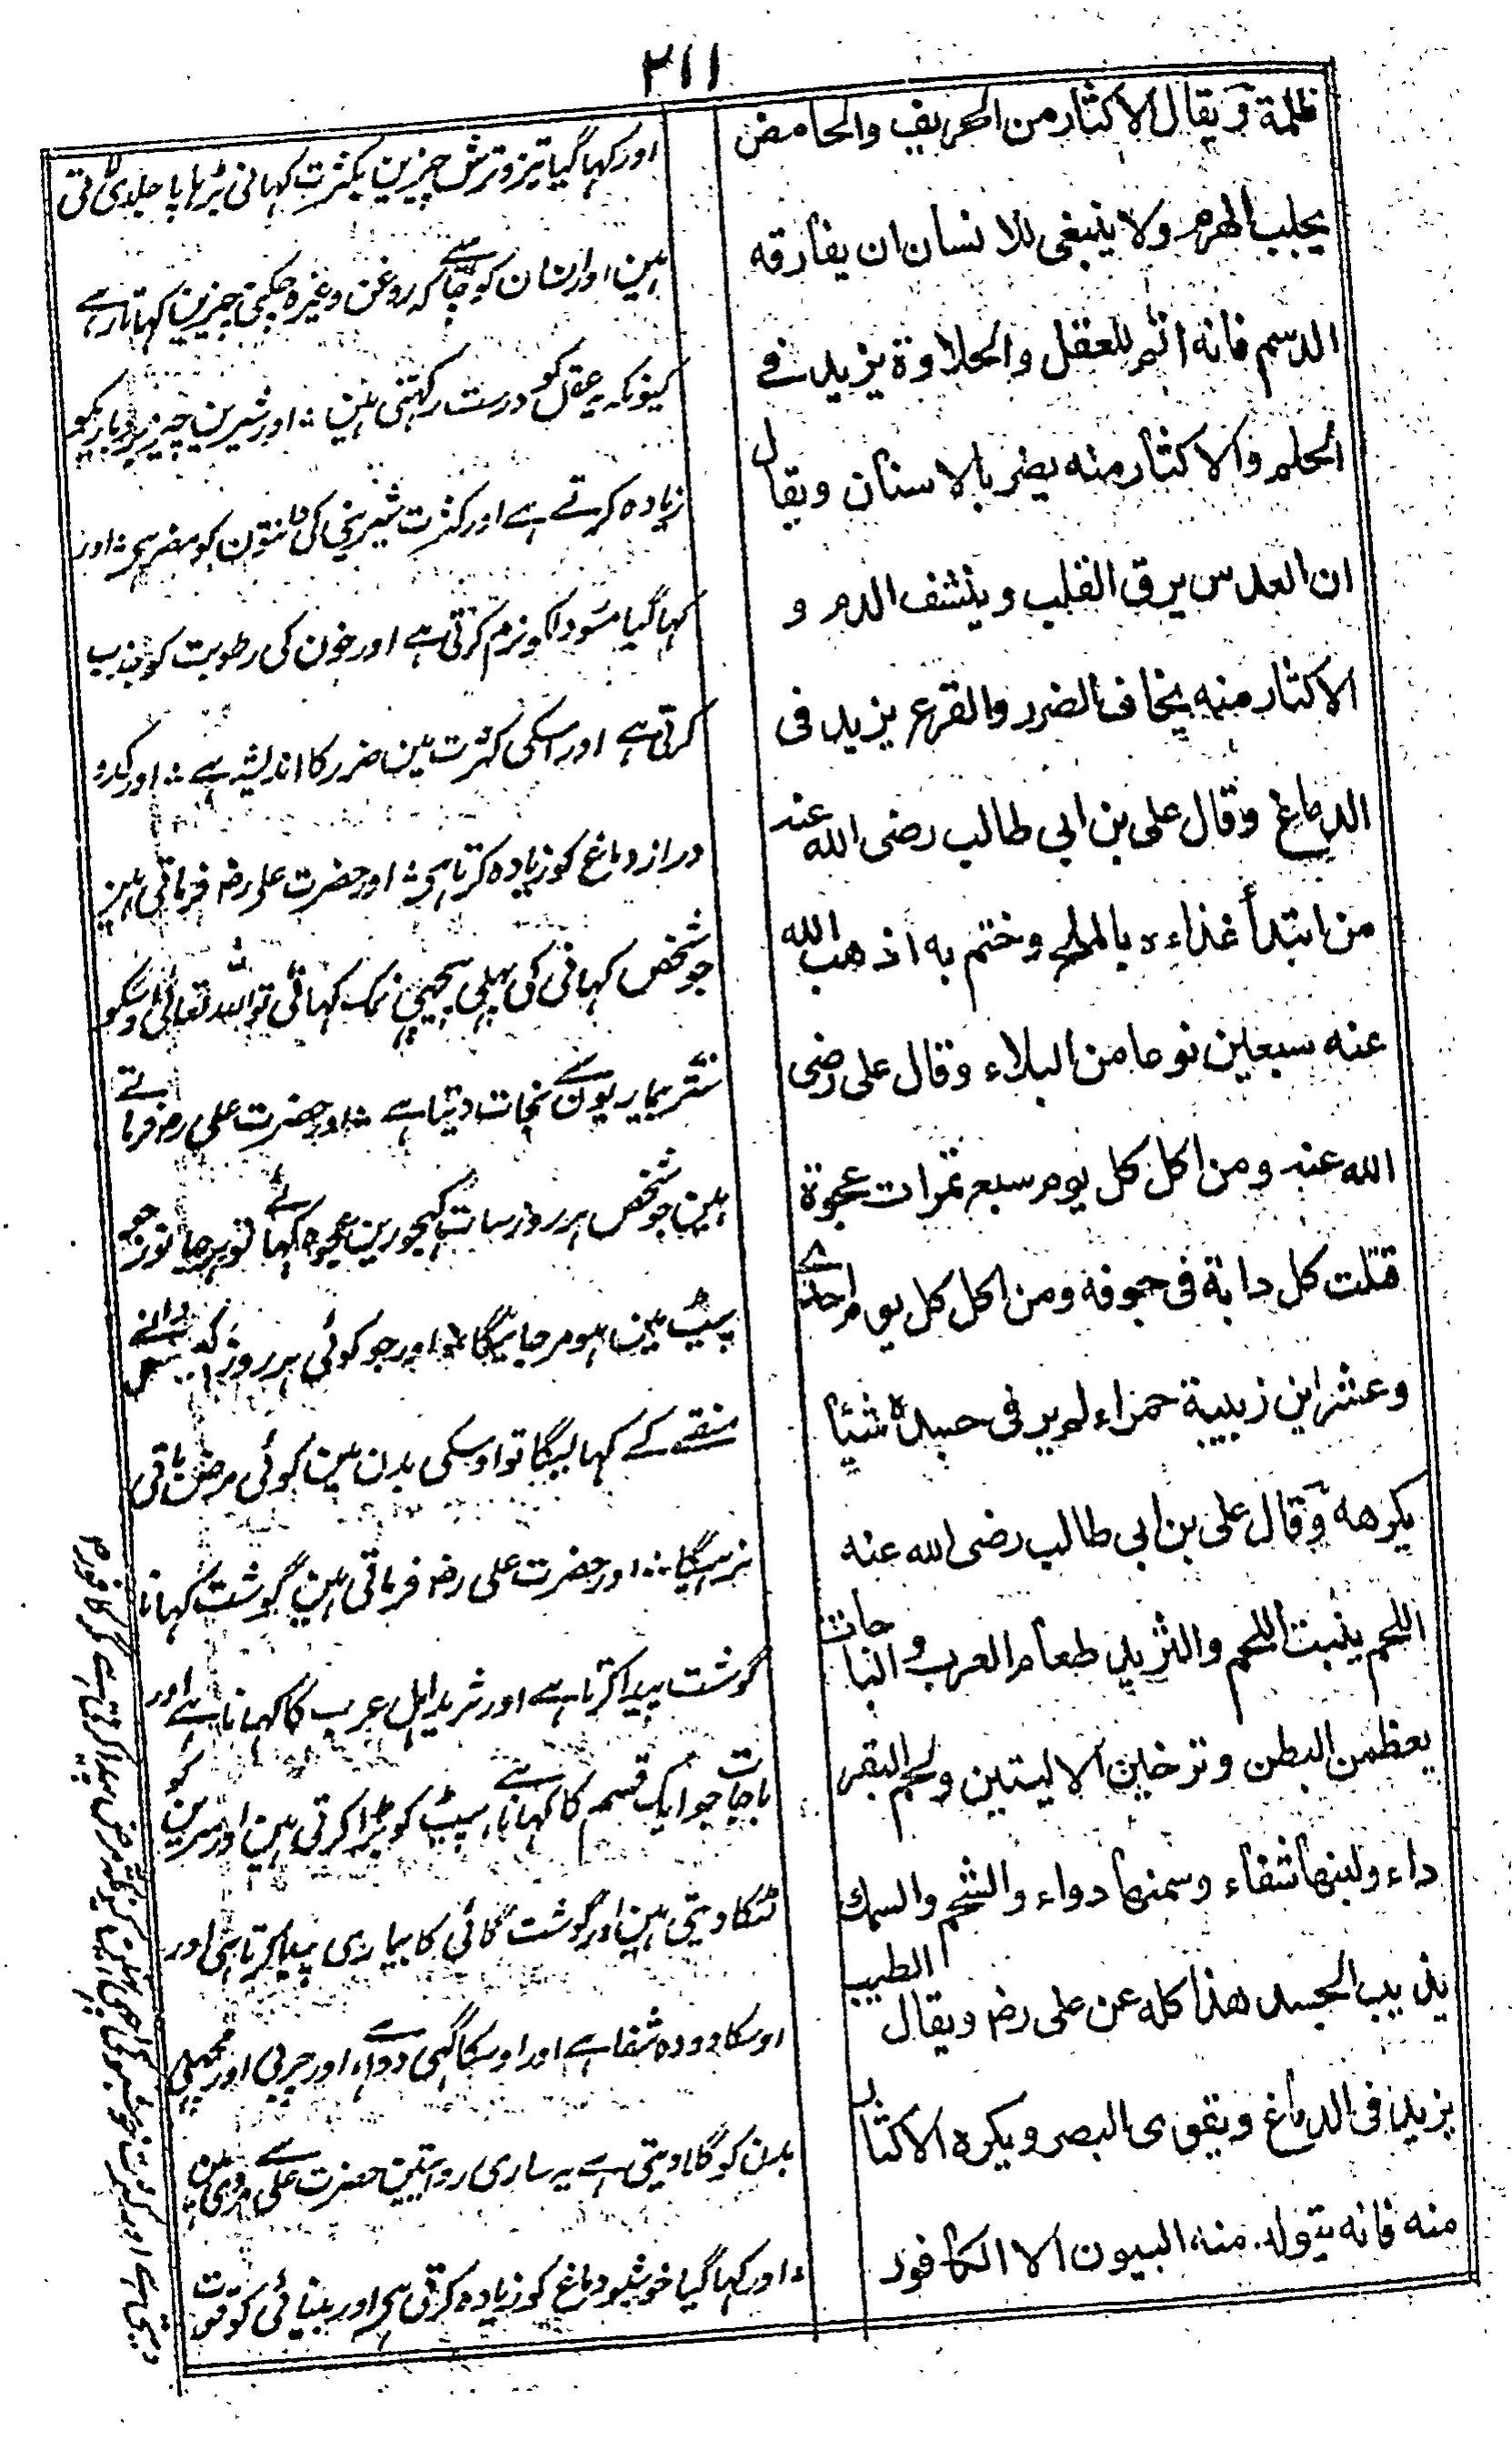 ٢١١
ظلمة ويقال الاكثار من الحريف والحامض
يجلب الهرم ولا ينبغي للانسان ان يفارقه
الدسم فانه اتم للعقل والحلاوة يزيد في
الحلم والاكثار منه يضر بالاسنان ويقال
ان العدس يرق القلب وينشف الدم و
الاكثار منه يخاف الضرر والقرع يزيد فى
الدماغ وقال على بن ابى طالب رضى الله عنه
من ابتدأ غذاءه بالملح وختم به اذهب الله
عنه سبعين نوعا من البلاء وقال على رضى
الله عنه ومن اكل كل يوم سبع تمرات عجوة
قتلت كل دابة فى جوفه ومن اكل كل يوم احدے
وعشرين زبيبة حمراء لم ير فى جسده شيئا
يكرهه وقال على بن ابى طالب رضى الله عنه
اللحم ينبت اللحم والثريد طعام العرب و الباجات
يعظمن البطن وترخين الاليتين ولحم البقر
داء ولبنها شفاء وسمنها دواء والشحم والسمك
يذيب الجسد هذا كله عن على رض ويقال الطيب
يزيد فى الدماغ ويقوى البصر ويكره الاكثار
منه فانه يتولد منه البيون الا الكافور
اور کہا گیا تیز و ترش چیزین بکثرت کہانی بڑہاپا جلدی لاتی
ہین اور انسان کو چاہئے کہ روغن وغیرہ چکنی چیزین کہاتا رہے
کیونکہ یہ عقل کو درست رکہتی ہین ؞ اور شیرین چیز بردباریکو
زیادہ کرتے ہے اور کثرت شیرینی کی دانتون کو مضر ہی ؞ اور
کہا گیا مسور دلکو نرم کرتی ہے اور خون کی رطوبت کو جذب
کرتی ہے اور اسکی کثرت مین ضرر کا اندیشہ ہے ؞ اور کدو
دراز دماغ کو زیادہ کرتا ہی ؞ اور حضرت علی رض فرماتی ہین
جو شخص کہانی کی پہلی پیچہی نمک کہائی تو اللہ تعالیٰ اوسکو
ستر بیماریون سے نجات دیتا ہے ؞ اور حضرت علی رض فرماتے
ہین جو شخص ہر روز سات کہجورین عجوہ کہائے تو ہر جانور جو
پیٹ مین ہو مرجائیگا ؞ اور جو کوئی ہر روز اکیس دانے
منقے کے کہالیگا تو اوسکی بدن مین کوئی مرض باقی
نرہیگا ؞ اور حضرت علی رض فرماتی ہین گوشت کہانا
گوشت پیدا کرتا ہے اور ثرید اہل عرب کا کہانا ہے اور
باجات جو ایک قسم کا کہانا ہے پیٹ کو بڑا کرتی ہین اور سرین کو
لٹکا دیتی ہین اور گوشت گائی کا بیماری پیدا کرتا ہی اور
اوسکا دودہ شفا ہے اور اوسکا گہی دوا ہے اور چربی اور مچہلی
بدن کو گلا دیتی ہے یہ ساری روایتین حضرت علی سے مروی ہین
؞ اور کہا گیا خوشبو دماغ کو زیادہ کرتی ہی اور بینائی کو قوت
دیتی ہے اور